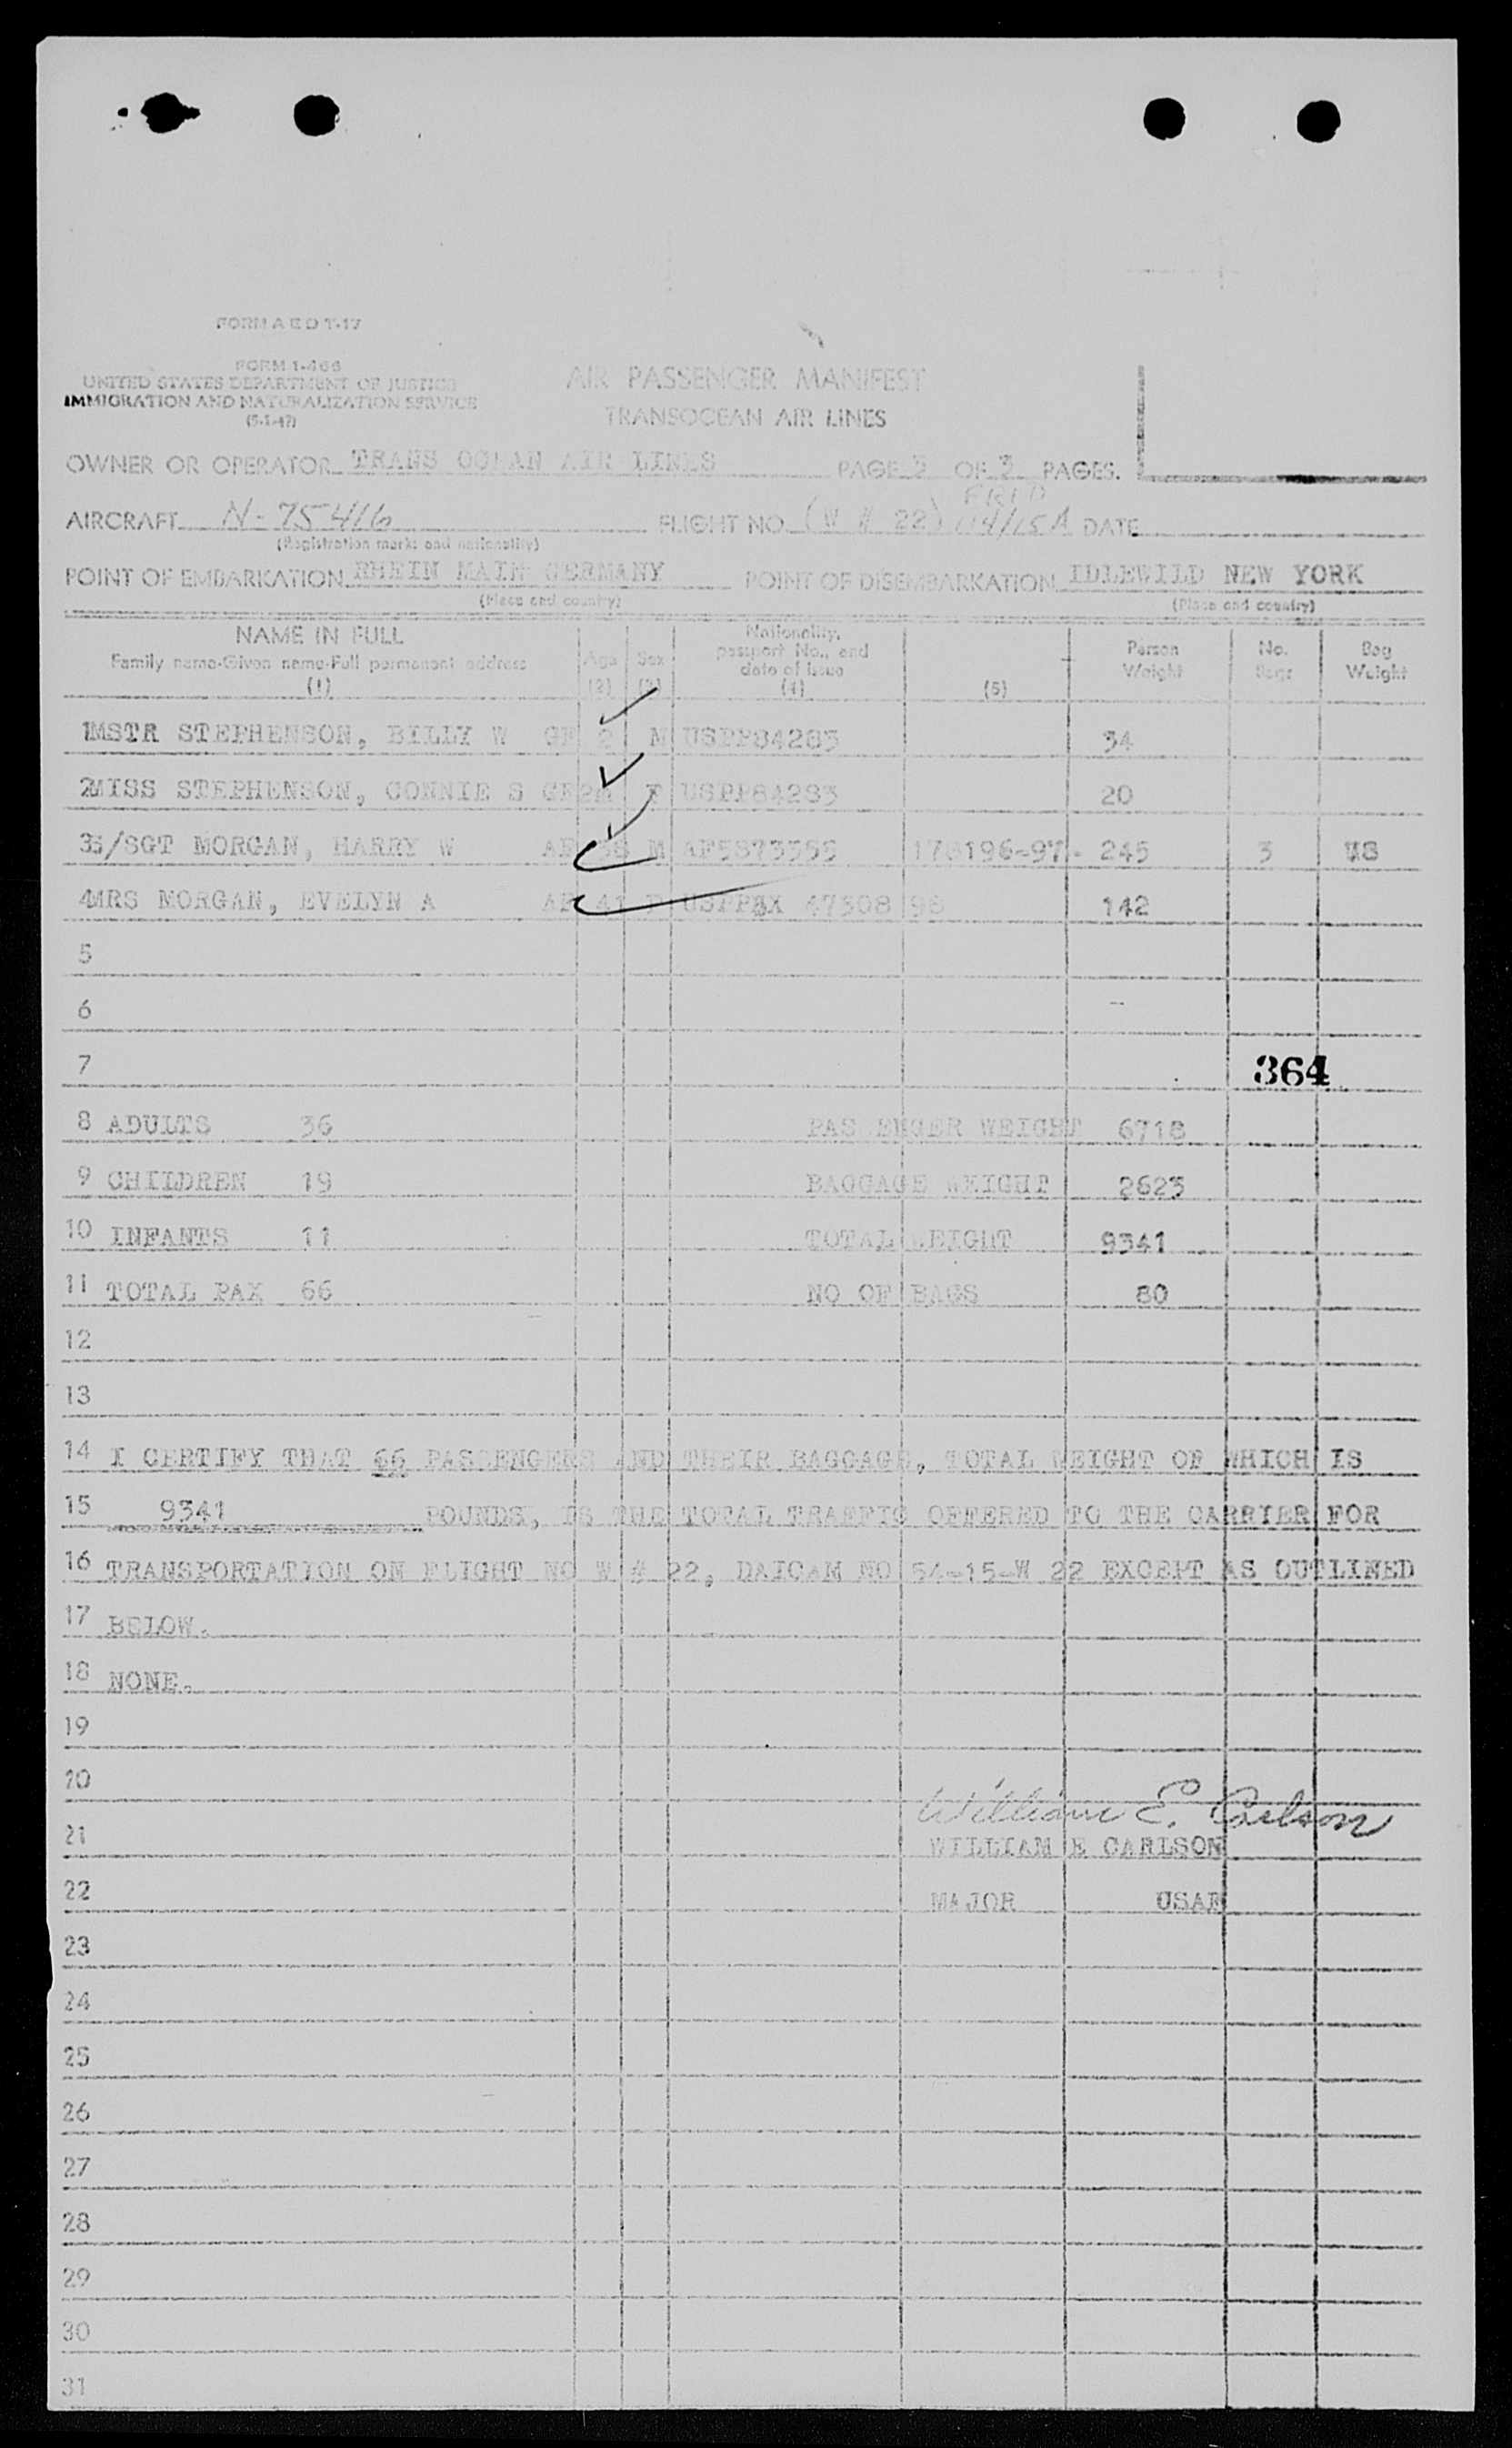 FORM A E D T-17
FORM 1-466
UNITED STATES DEPARTMENT OF JUSTICE
IMMIGRATION AND NATURALIZATION SERVICE
(5-1-47)
AIR PASSENGER MANIFEST
TRANSOCEAN AIR LINES
OWNER OR OPERATOR TRANS OCEAN AIR LINES PAGE 3 OF 3 PAGES.
AIRCRAFT N-75416 FLIGHT NO. (W # 22) 114/15A DATE
(Registration marks and nationality)
POINT OF EMBARKATION RHEIN MAIN GERMANY POINT OF DISEMBARKATION IDLEWILD NEW YORK
(Place and country) (Place and country)
NAME IN FULL
Family name-Given name-Full permanent address
(1)
Age
(2)
Sex
(3)
Nationality, passport No., and date of issue
(4)
(5)
Person Weight
No. Bags
Bag Weight
1 MSTR STEPHENSON, BILLY W GF 2 M USPP84283 34
2 MISS STEPHENSON, CONNIE S GF F USPP84283 20
3 S/SGT MORGAN, HARRY W AF M 245 3
4 MRS MORGAN, EVELYN A AF 41 F 47308 98 142
5
6
7
364
8 ADULTS 36 PASSENGER WEIGHT 6718
9 CHILDREN 19 BAGGAGE WEIGHT 2623
10 INFANTS 11 TOTAL WEIGHT 9341
11 TOTAL PAX 66 NO OF BAGS 80
12
13
14 I CERTIFY THAT 66 PASSENGERS AND THEIR BAGGAGE, TOTAL WEIGHT OF WHICH IS
15 9341 POUNDS, IS THE TOTAL TRAFFIC OFFERED TO THE CARRIER FOR
16 TRANSPORTATION ON FLIGHT NO W # 22, DAICAM NO 54-15-W 22 EXCEPT AS OUTLINED
17 BELOW.
18 NONE.
19
20
William E. Carlson
21 WILLIAM E CARLSON
22 MAJOR USAF
23
24
25
26
27
28
29
30
31